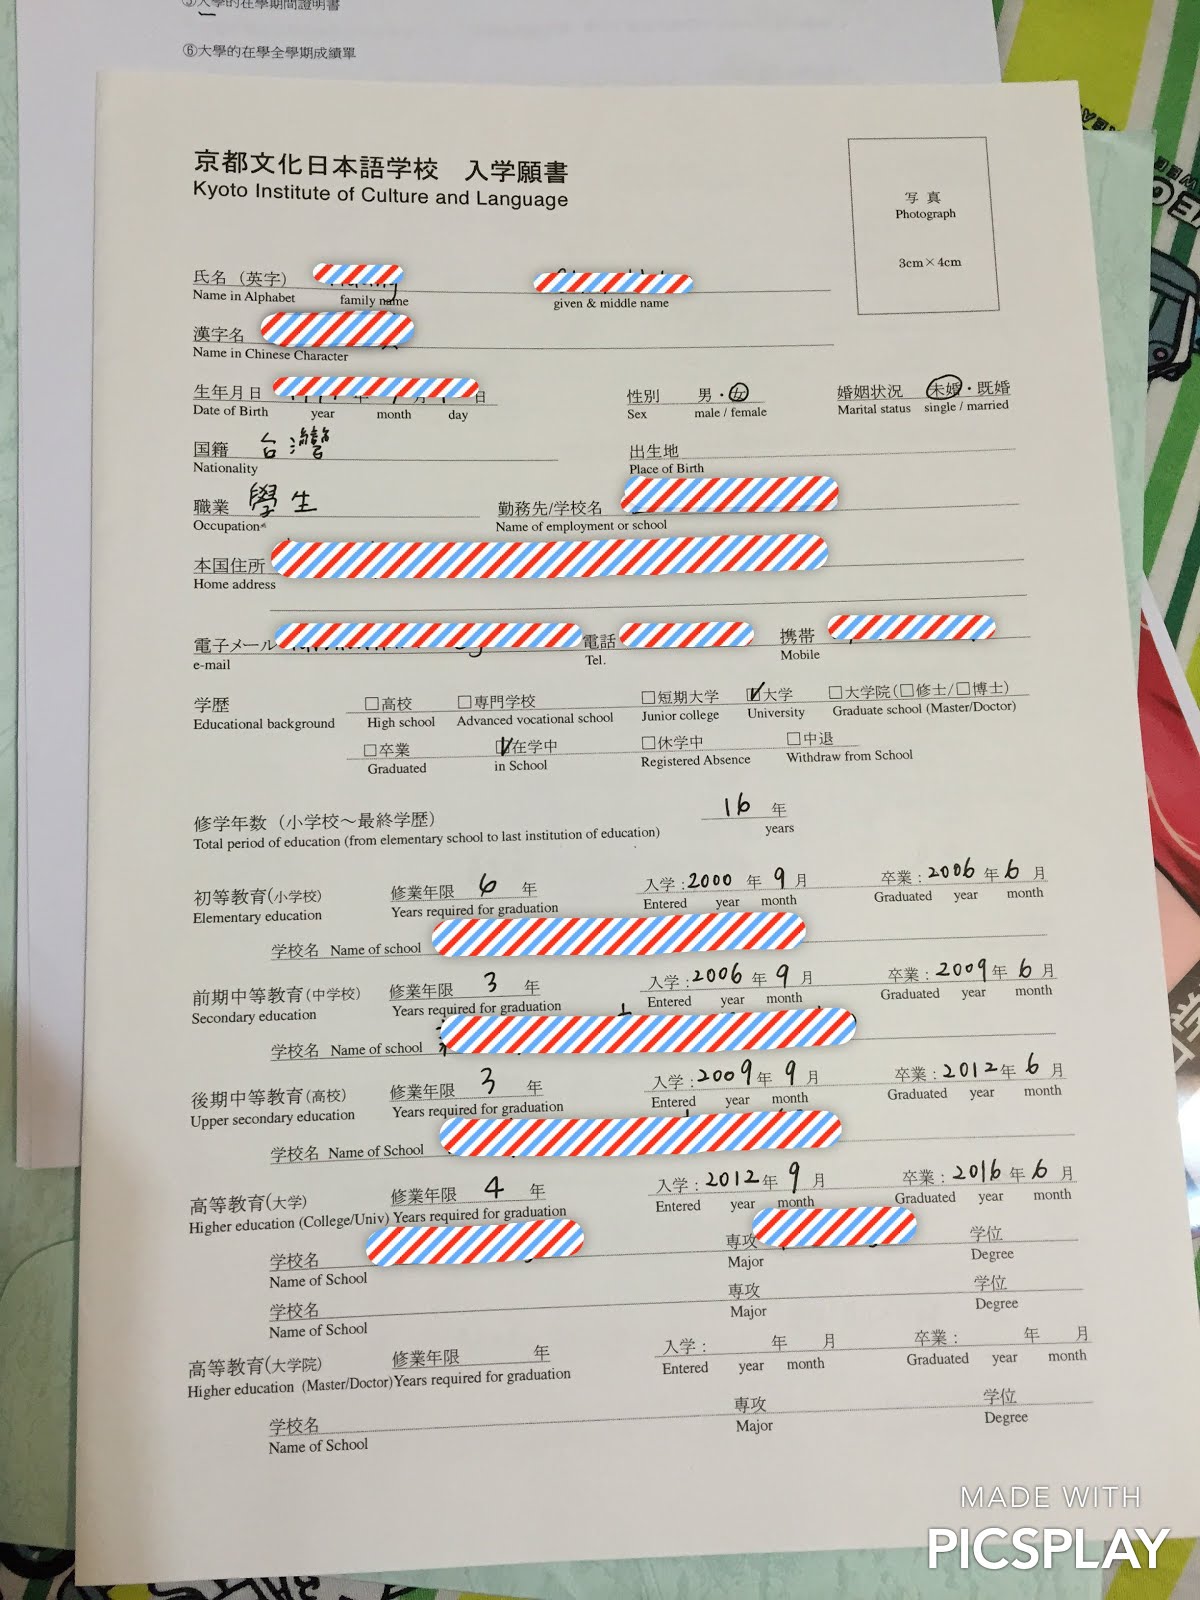 ⑤大學的在學期間證明書
⑥大學的在學全學期成績單
京都文化日本語学校 入学願書
Kyoto Institute of Culture and Language
写 真
Photograph
3cm×4cm
氏名（英字）
Name in Alphabet family name given & middle name
漢字名
Name in Chinese Character
生年月日 年 月 日 性別 男・女 婚姻状況 未婚・既婚
Date of Birth year month day Sex male / female Marital status single / married
国籍 台灣 出生地
Nationality Place of Birth
職業 學生 勤務先/学校名
Occupation Name of employment or school
本国住所
Home address
電子メール 電話 携帯
e-mail Tel. Mobile
学歴 □高校 □専門学校 □短期大学 ☑大学 □大学院(□修士/□博士)
Educational background High school Advanced vocational school Junior college University Graduate school (Master/Doctor)
□卒業 ☑在学中 □休学中 □中退
Graduated in School Registered Absence Withdraw from School
修学年数（小学校～最終学歴） 16 年
Total period of education (from elementary school to last institution of education) years
初等教育(小学校) 修業年限 6 年 入学：2000 年 9 月 卒業：2006 年 6 月
Elementary education Years required for graduation Entered year month Graduated year month
学校名 Name of school
前期中等教育(中学校) 修業年限 3 年 入学：2006 年 9 月 卒業：2009 年 6 月
Secondary education Years required for graduation Entered year month Graduated year month
学校名 Name of school
後期中等教育(高校) 修業年限 3 年 入学：2009 年 9 月 卒業：2012 年 6 月
Upper secondary education Years required for graduation Entered year month Graduated year month
学校名 Name of School
高等教育(大学) 修業年限 4 年 入学：2012 年 9 月 卒業：2016 年 6 月
Higher education (College/Univ) Years required for graduation Entered year month Graduated year month
学校名 専攻 学位
Name of School Major Degree
学校名 専攻 学位
Name of School Major Degree
高等教育(大学院) 修業年限 年 入学： 年 月 卒業： 年 月
Higher education (Master/Doctor) Years required for graduation Entered year month Graduated year month
学校名 専攻 学位
Name of School Major Degree
MADE WITH
PICSPLAY